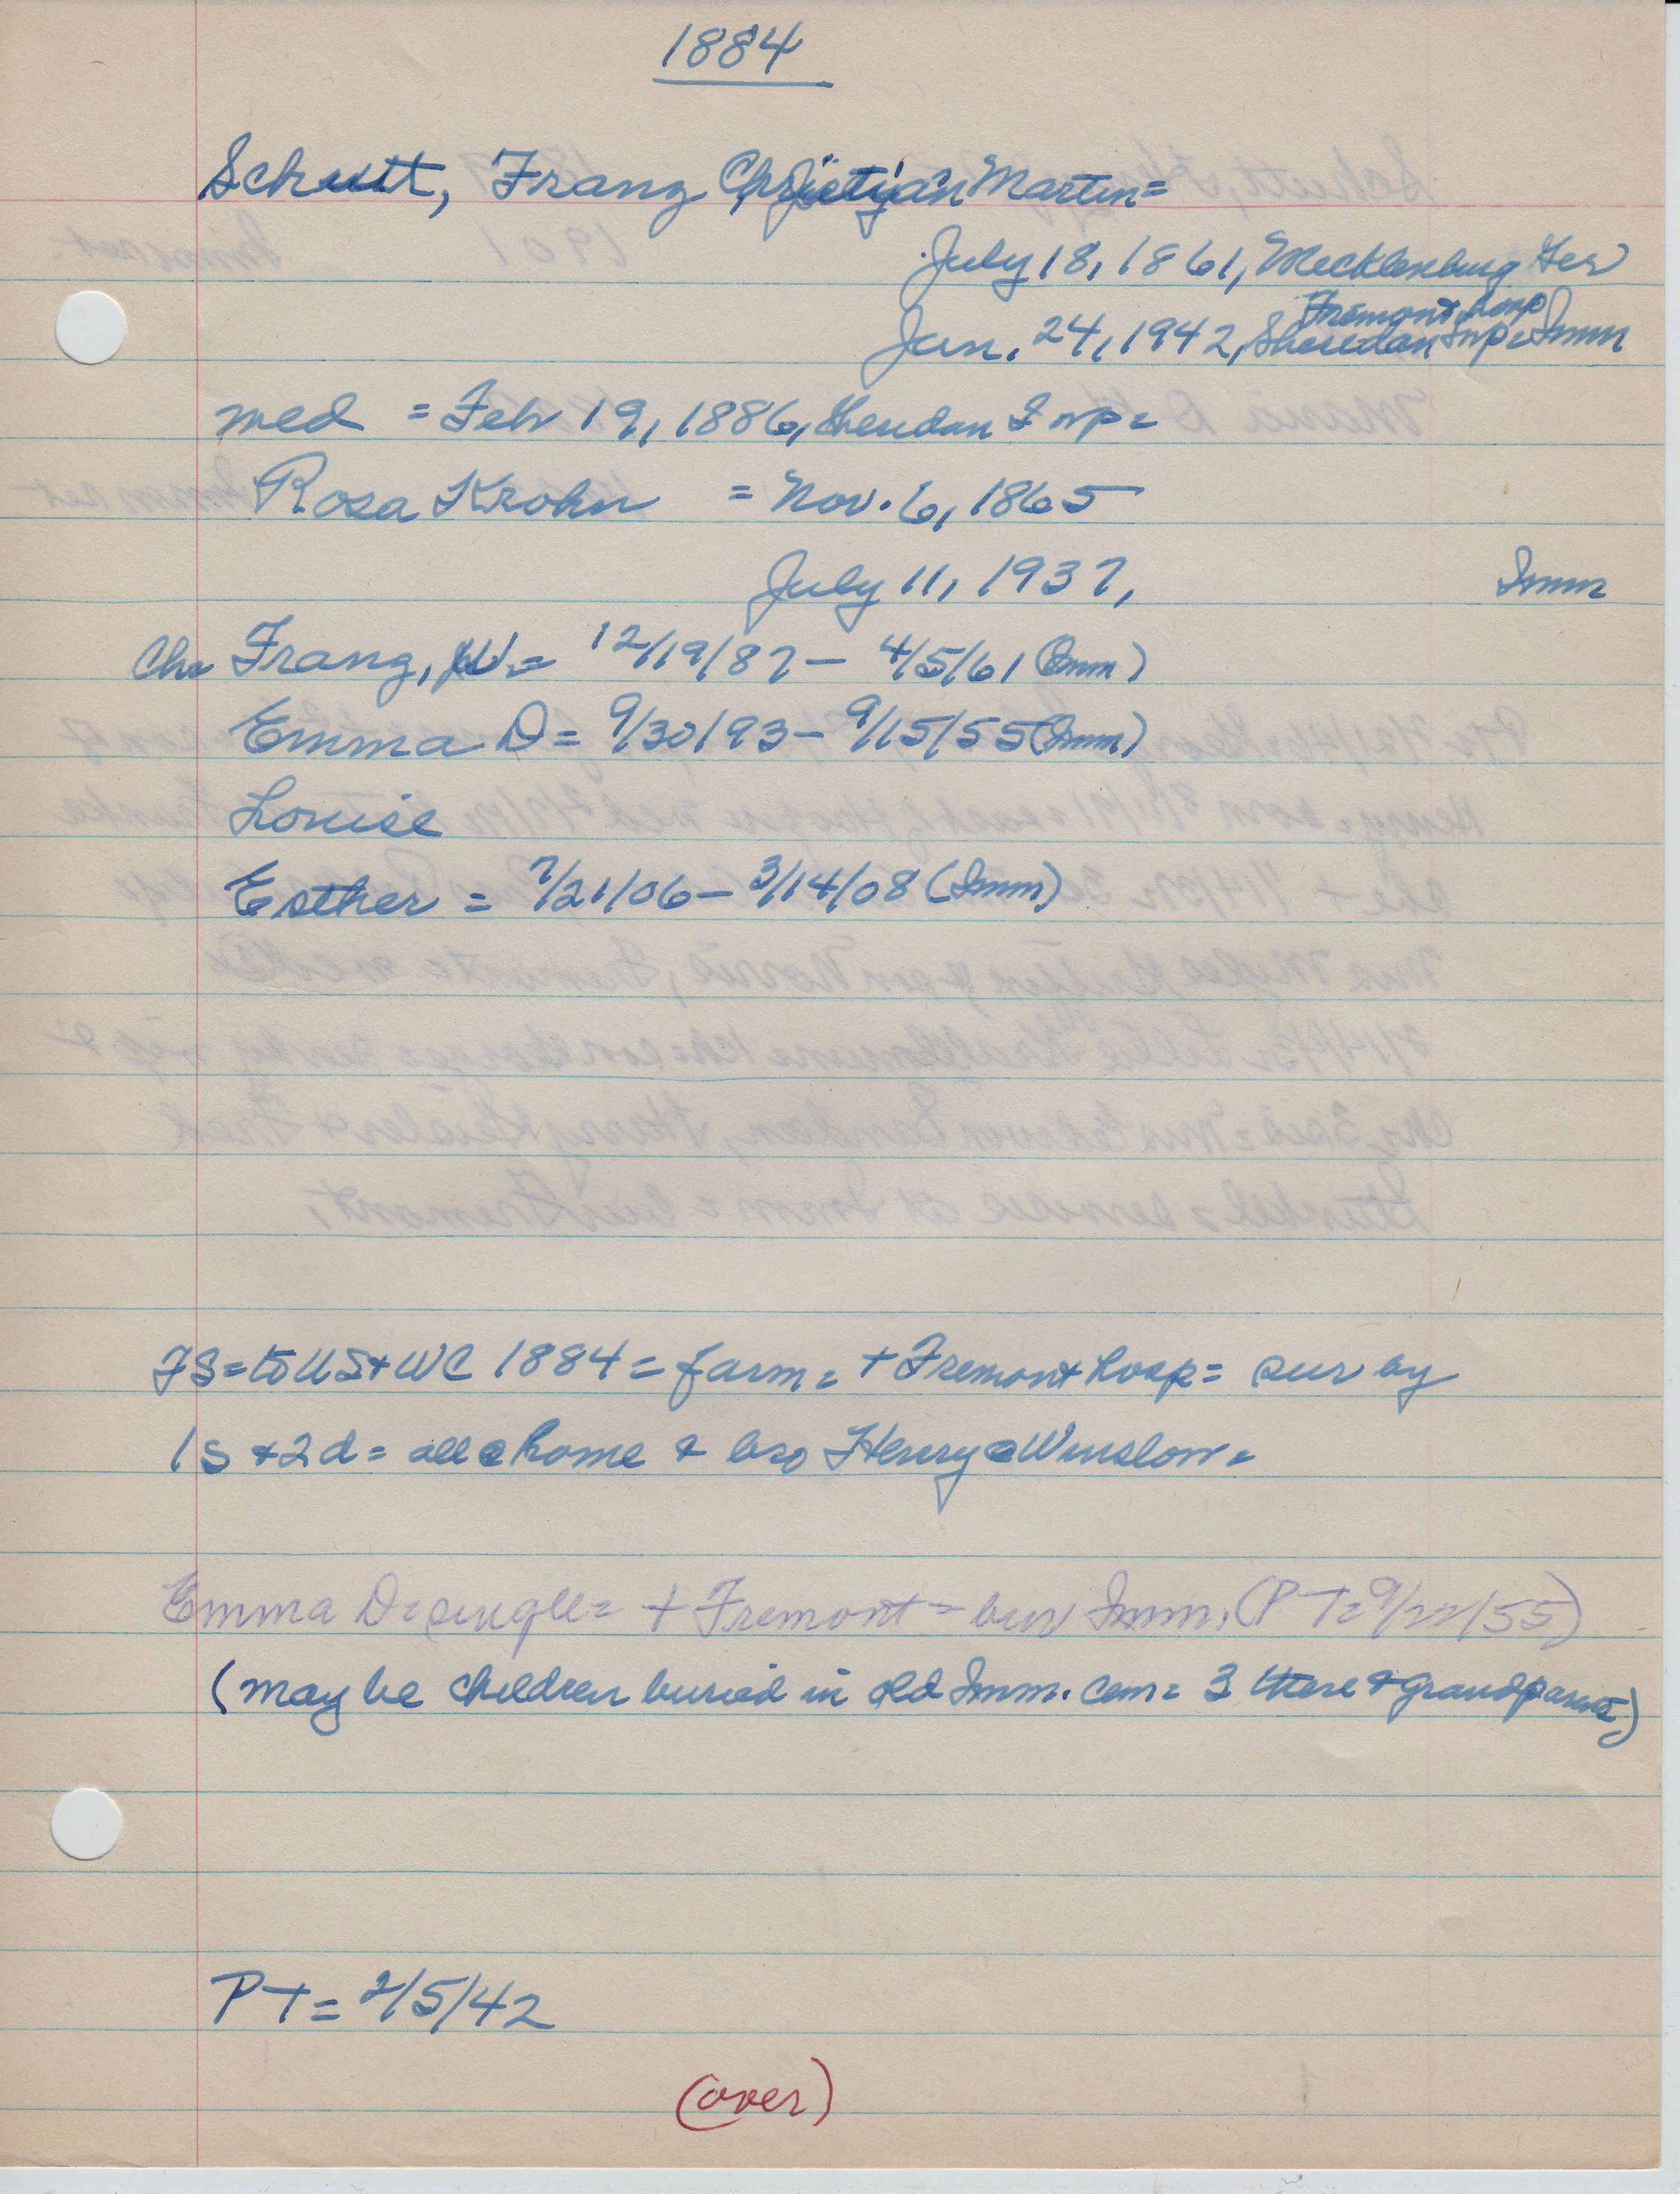 1884
Schutt, Franz Christian Martin=
July 18, 1861, Mecklenburg Ger
Fremont hosp
Jan. 24, 1942, Sheridan Twp= Imm
med = Feb 19, 1886, Sheridan Twp=
Rosa Krohn = Nov. 6, 1865
July 11, 1937, Imm
Chr Franz, W= 12/19/87 - 4/5/61 (Imm)
Emma D= 9/30/93 - 9/15/55 (Imm)
Louise
Esther = 7/21/06 - 3/14/08 (Imm)
FS= to US + WC 1884 = farm= + Fremont hosp= sur by
1s + 2d= all @ home & bro Henry @ Winslow=
Emma D= single= + Fremont = bur Imm. (PT= 9/22/55)
(may be children buried in old Imm. cem= 3 there & grandparents)
PT= 2/5/42
(over)